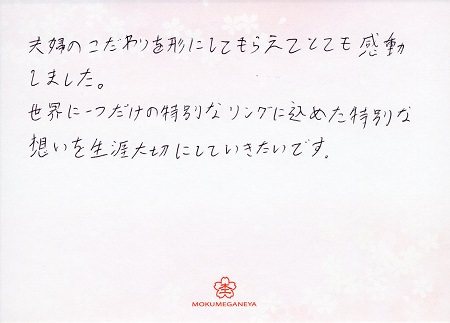 夫婦のこだわりを形にしてもらえてとても感動
しました。
世界に一つだけの特別なリングに込めた特別な
想いを生涯大切にしていきたいです。
MOKUMEGANEYA